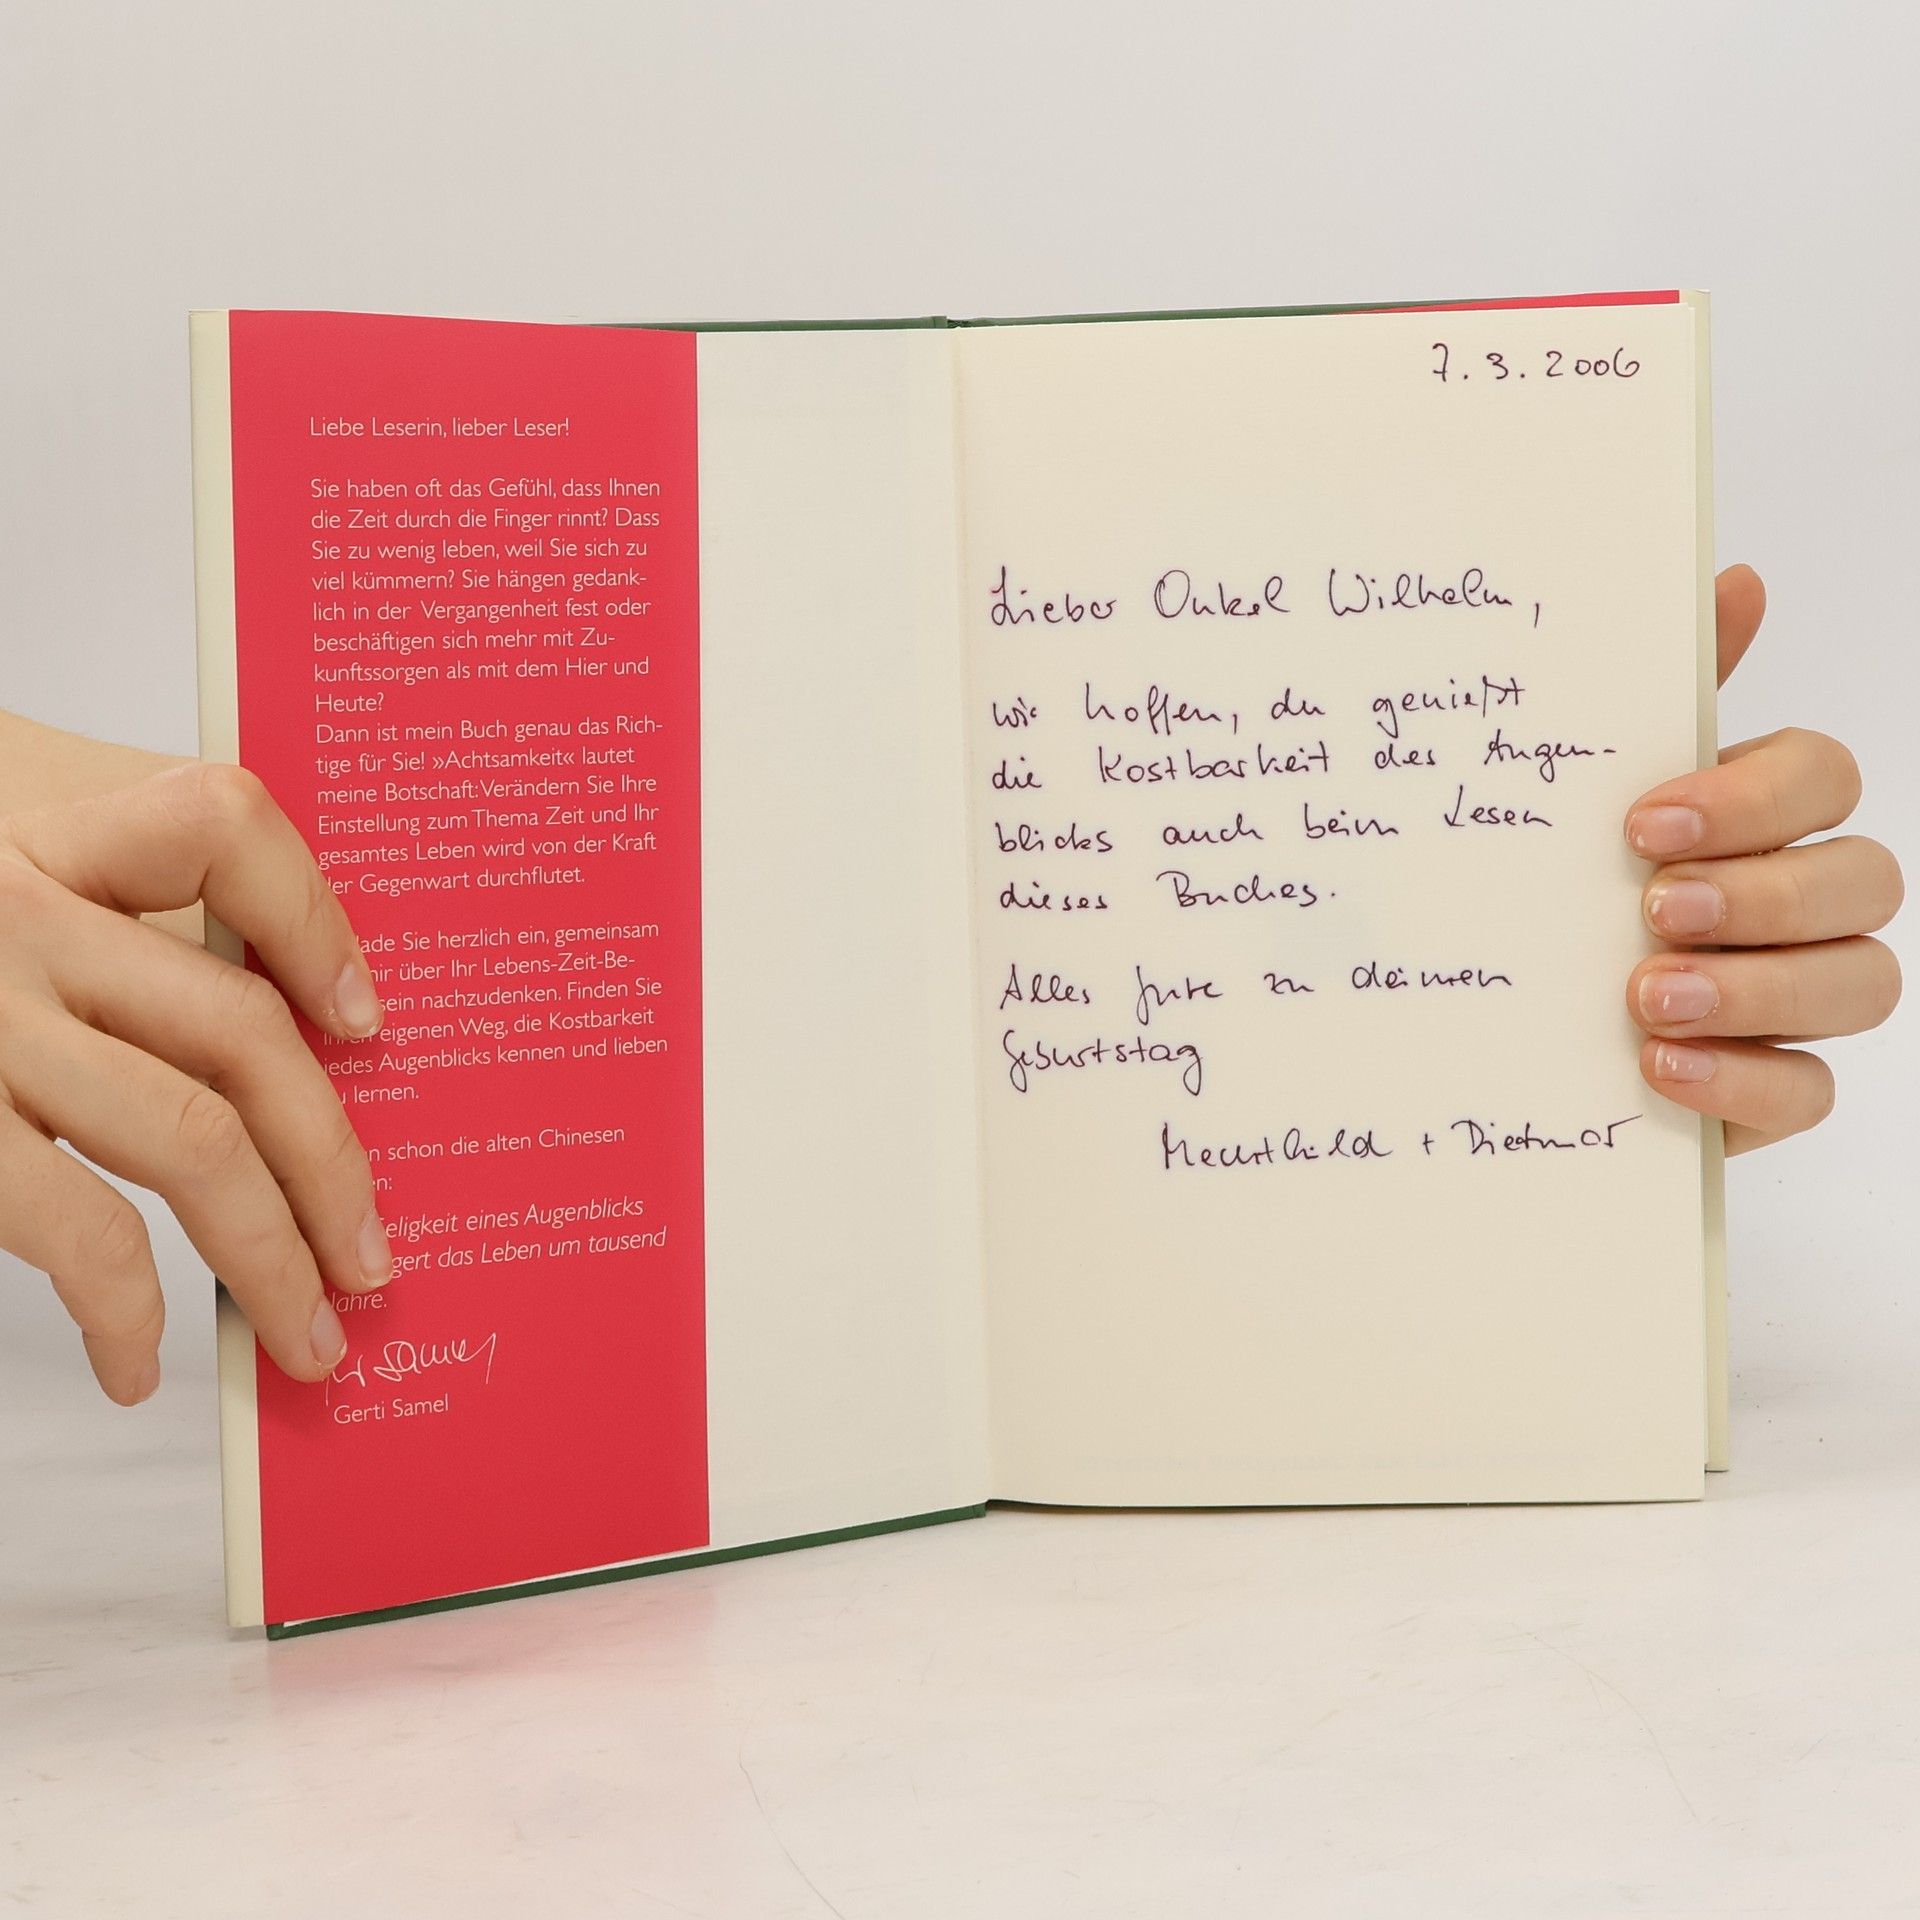 Liebe Leserin, lieber Leser!
Sie haben oft das Gefühl, dass Ihnen
die Zeit durch die Finger rinnt? Dass
Sie zu wenig leben, weil Sie sich zu
viel kümmern? Sie hängen gedank-
lich in der Vergangenheit fest oder
beschäftigen sich mehr mit Zu-
kunftssorgen als mit dem Hier und
Heute?
Dann ist mein Buch genau das Rich-
tige für Sie! »Achtsamkeit« lautet
meine Botschaft: Verändern Sie Ihre
Einstellung zum Thema Zeit und Ihr
gesamtes Leben wird von der Kraft
der Gegenwart durchflutet.
lade Sie herzlich ein, gemeinsam
mir über Ihr Lebens-Zeit-Be-
sein nachzudenken. Finden Sie
Ihren eigenen Weg, die Kostbarkeit
jedes Augenblicks kennen und lieben
zu lernen.
schon die alten Chinesen
eligkeit eines Augenblicks
gert das Leben um tausend
Jahre.
Gerti Samel
7.3.2006
Lieber Onkel Wilhelm,
wir hoffen, du genießt
die Kostbarkeit des Augen-
blicks auch beim Lesen
dieses Buches.
Alles Gute zu deinem
Geburtstag
Mechthild + Dietmar